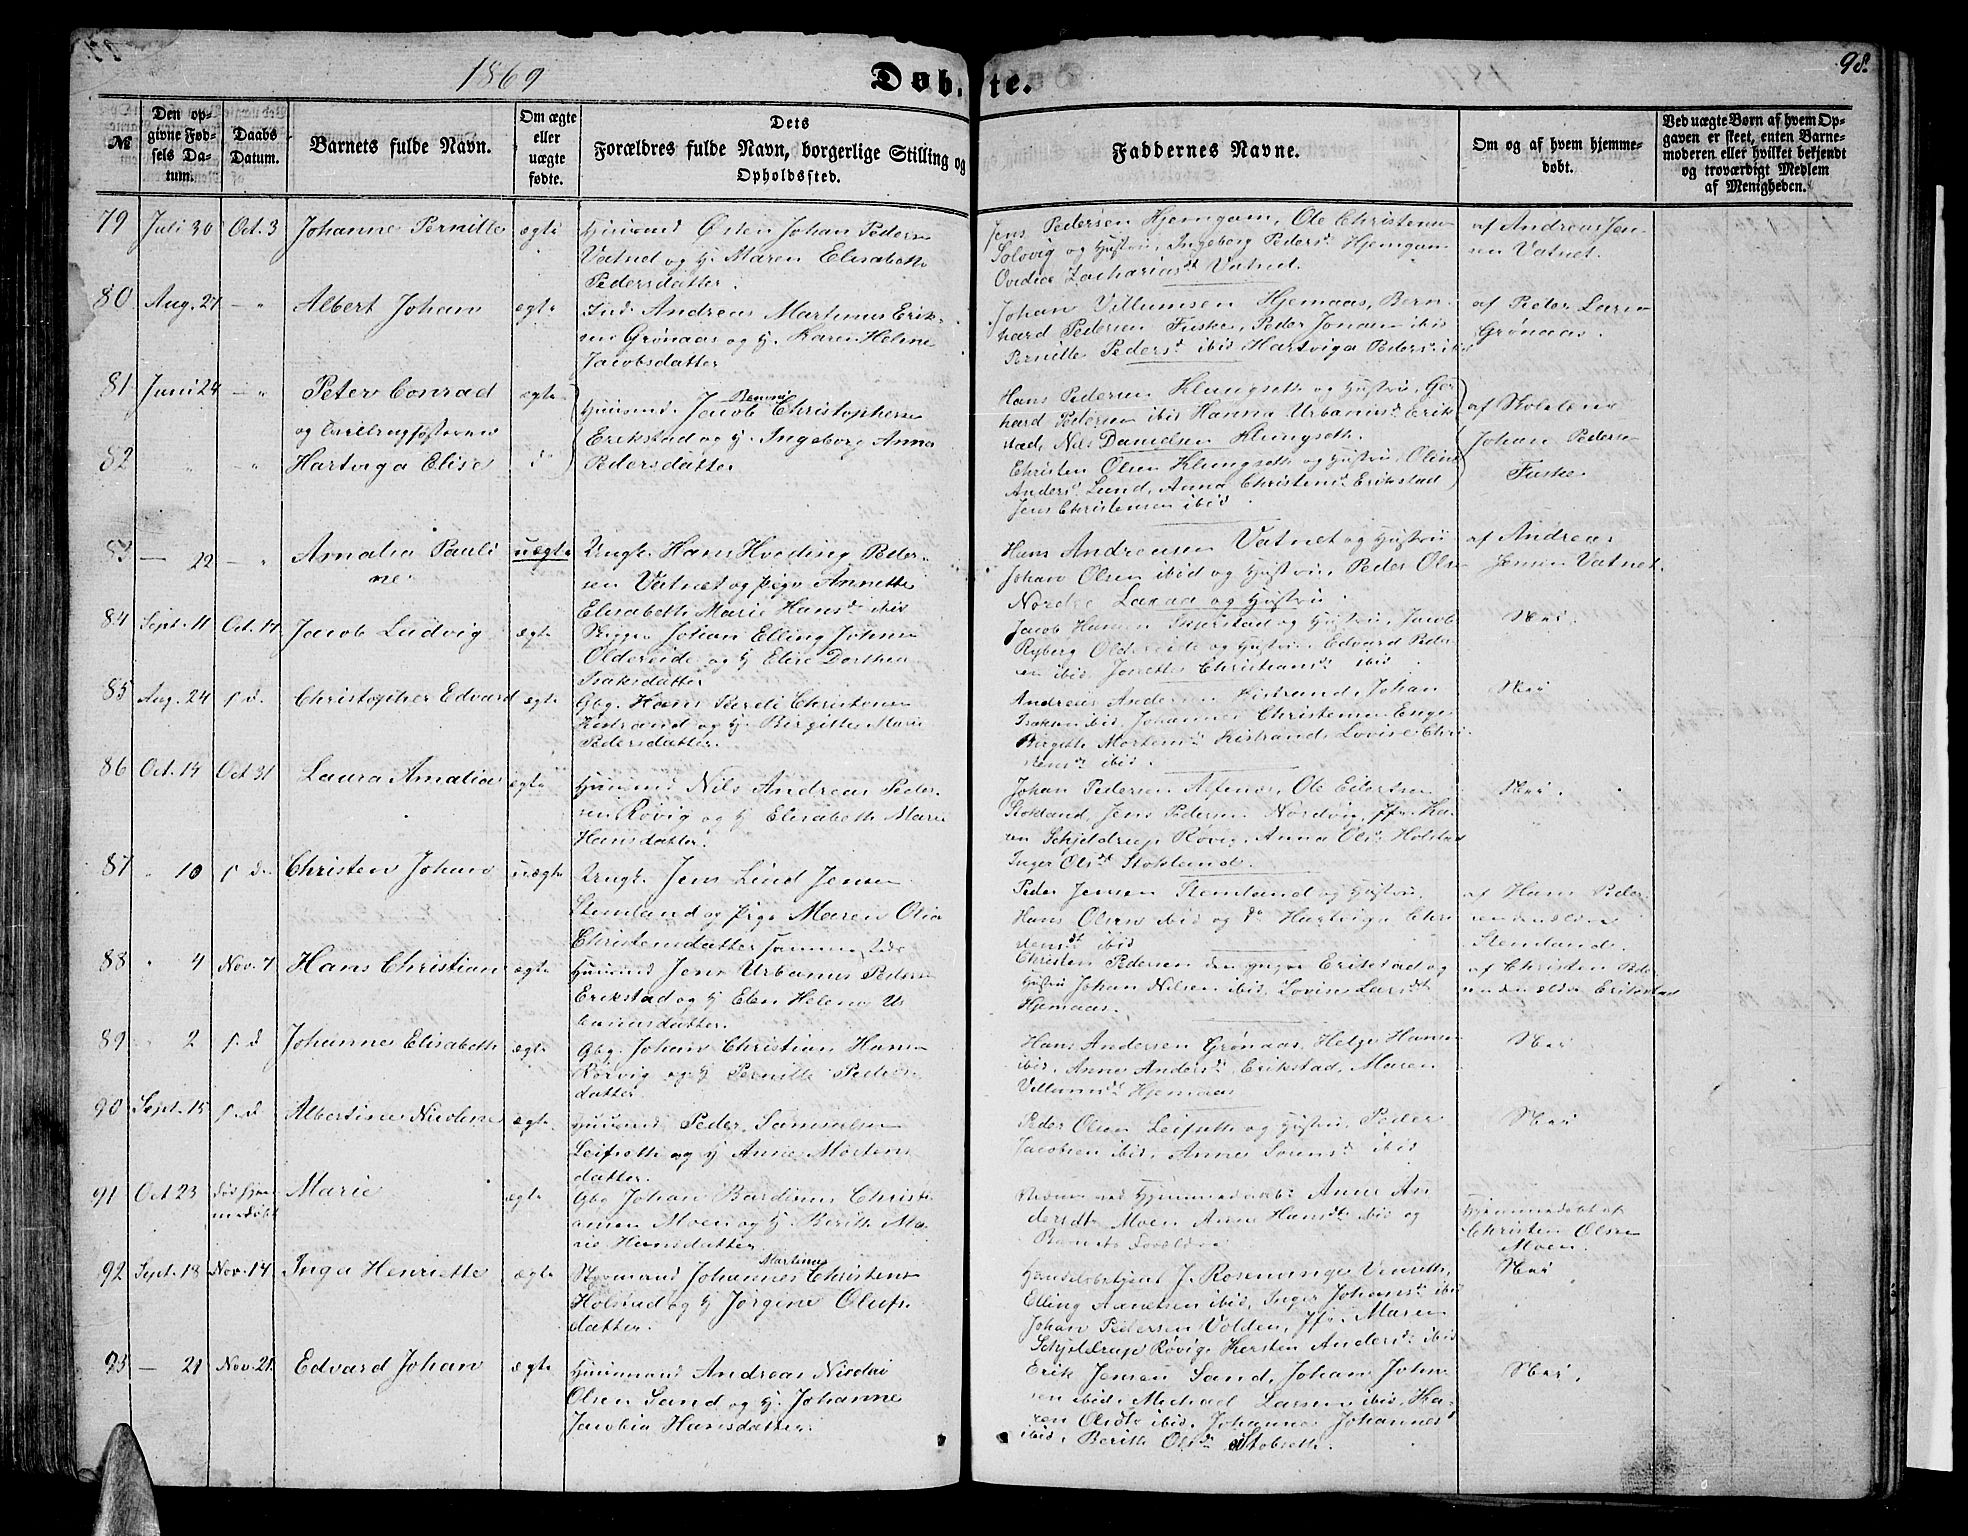 1869
Døbte.
98.
№
Den opgivne Fødsels Datum.
Daabs Datum.
Barnets fulde Navn.
Om ægte eller uægte fødte.
Dets Forældres fulde Navn, borgerlige Stilling og Opholdssted.
Faddernes Navne.
Om og af hvem hjemmedøbt.
Ved uægte Børn af hvem Opgaven er skeet, enten Barnemoderen eller hvilket bekjendt og troværdigt Medlem af Menigheden.
79 Juli 30 Oct. 3 Johanne Pernille ægte Huusmd Østen Johan Peders
Vatnet og H. Maren Elisabeth
Pedersdatter.
Jens Pedersen Hjemgam, Ole Christens
Solvig og Hustru, Ingeborg Pedersd. Hjemgam
Ovidie Zachariasdt Vatnet.
af Andreas Jensen Vatnet.
80 Aug. 27 — " Albert Johan ægte Ind. Andreas Martinus Eriksen
Grønaas og H. Karen Helene
Jacobsdatter
Johan Villumsen Hjemaas, Bernhard
Pedersen Fuske, Peder Jonsen ibid
Pernille Pedersd. ibid Hartviga Peders. ibid
af Peder Larsen
Grønaas.
81 Juni 24 — " Peter Conrad ægte Huusmd. Jacob Benoni Christophersen
og Tvillingsøsteren
82 " — " Hartviga Elise do Erikstad og H. Ingeborg Anna
Pedersdatter
Hans Pedersen Klungseth og Hustru, Gerhard
Pedersen ibid Hanna Urbanusd. Erikstad,
Nils Danielsen Klungseth.
Christen Olsen Klungseth og Hustru, Oline
Andersd. Lund, Anna Christensd. Erikstad
Jens Christensen ibid
af Skolelærer
Johan Pedersen
Fuske
83 — 22 — " Amalia Pauline uægte Ungk. Hans Hveding Pedersen
Vatnet og Pige Annette
Elisabeth Marie Hansd. ibid
Hans Andreasen Vatnet og Hustru
Johan Olsen ibid og Hustru, Peder Olsen
Nordre Laxaa og Hustru.
af Andreas
Jensen Vatnet.
84 Sept. 11 Oct. 17 Jacob Ludvig ægte Johan Elling Johnsen
Oldereide og H Elise Dorthea
Isaksdatter
Jacob Hansen og Hustru, Jacob
Ryberg Oldereide og Hustru. Edvard Pedersen
ibid, Jonette Christiansd. ibid
Nei.
85 Aug. 24 s. d. Christopher Edvard ægte Gbg. Hans Pareli Christensen
Kistrand og H. Birgitte Marie
Pedersdatter.
Andreas Andersen Kistrand, Johan
Isaksen ibid, Johannes Christensen Enge
Birgith Mortensd. Kistrand, Lovise Christensd.
ibid.
Nei
86 Oct. 14 Oct 31 Laura Amalia ægte Huusmd Nils Andreas Pedersen
Røvig og H Elisabeth Marie
Hansdatter.
Johan Pedersen Alfenes, Ole Eilertsen
Stokland, Jens Pedersen Nordvig, Jfr. Karen
Schjelderup Røvig, Anna Olsd. Holstad
Inger Olsdt Stokland.
Nei.
87 " 10 s. d. Christen Johan uægte Ungk. Jens Lind Jensen
Stemland og Pige Maren Olia
Christensdatter samme Sted.
Peder Jensen Stemland og Hustru,
Hans Olsen ibid og do Hartviga Christensdt
ibid
af Hans Pedersen
den ældre
Stemland.
88 " 4 Nov. 7 Hans Christian ægte Huusmd Jens Urbanus Pedersen
Erikstad og H Elen Helena Urbanusdatter.
Christen Pedersen den yngre Erikstad og
Hustru Johan Nilsen ibid, Lovise Larsdt
Hjemaas.
af Christen Pedersen
den ældre Erikstad
89 " 2 s. d Johannes Elisabeth ægte Gbg. Johan Christian Hansen
Rørvig og H Pernille Pedersdatter.
Hans Andersen Grønaas, Helge Hansen
ibid, Anne Andersd. Erikstad, Maren
Villumsdt Hjemaas
Nei
90 Sept. 15 s. d Albertine Nicoline ægte Huusmd Peder Samuelsen
Leifseth og H Anne Mortensdatter.
Peder Olsen Leifseth og Hustru, Peder
Jacobsen ibid, Anne Sørensd. ibid
Nei
91 Oct 23 død hjemmedøbt Marie ægte Gbg Johan Bardinus Christiansen
Moen og H Berith Marie
Hansdatter
ved Hjemmedaaben Anne Andersdt.
Moen Anne Hansdt ibid og
Barnets Forældre
Hjemmedøbt af
Christen Olsen
Moen.
92 Sept. 18 Nov. 14 Inga Henriette ægte Styrmand Johannes Martinus Christensen
Holstad og H Jørgine Olufsdatter.
Handelsbetjent J. Rosenvinge Venseth,
Elling Axnelsen ibid, Inger Johansd. ibid
Johan Pedersen Volden, Jfr. Maren
Schjelderup Røvig, Kersten Andersd. ibid
Nei
93 — 21 Nov. 21 Edvard Johan ægte Huusmand Andreas Nicolai
Olsen Sand og H. Johanne
Jacobia Hansdatter.
Erik Jensen Sand, Johan Johnsen
ibid, Michael Larsen ibid, Karen
Olsdt. ibid, Johanna Johannesd
ibid, Berith Olsdt Stokseth.
Nei.